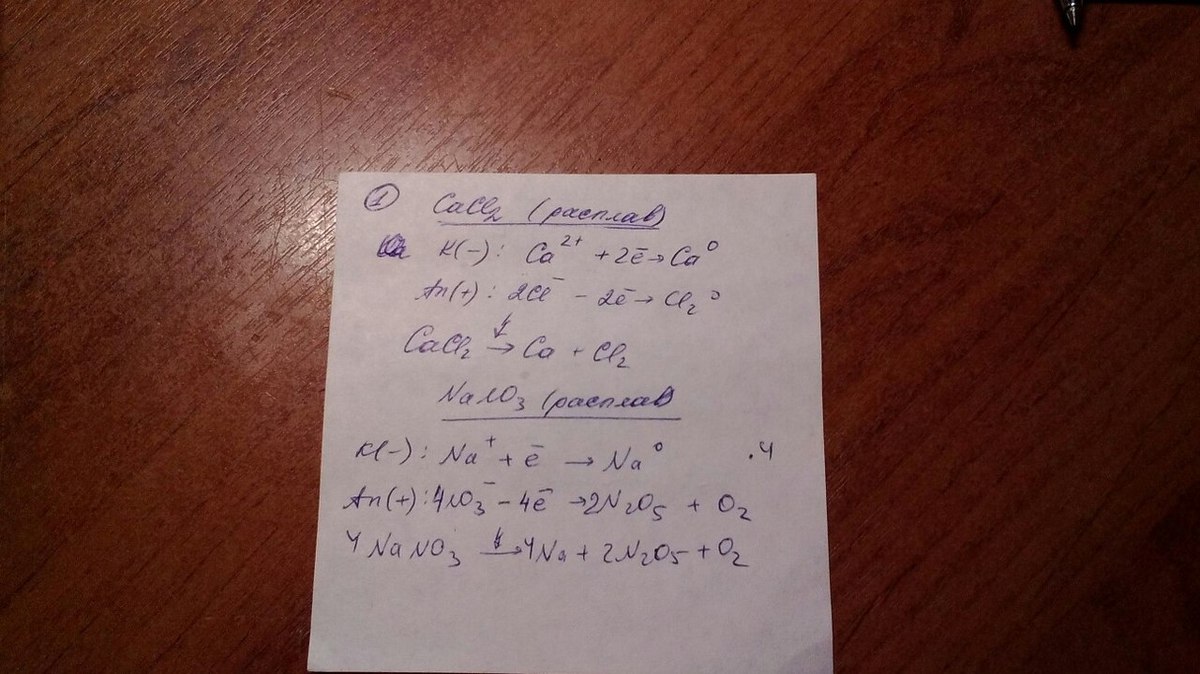 ① CaCl₂ (расплав)
K(-): Ca²⁺ + 2ē → Ca⁰
An(+): 2Cl⁻ - 2ē → Cl₂⁰
CaCl₂ → Ca + Cl₂
NaNO₃ (расплав)
K(-): Na⁺ + ē → Na⁰ .4
An(+): 4NO₃⁻ - 4ē → 2N₂O₅ + O₂
4NaNO₃ → 4Na + 2N₂O₅ + O₂